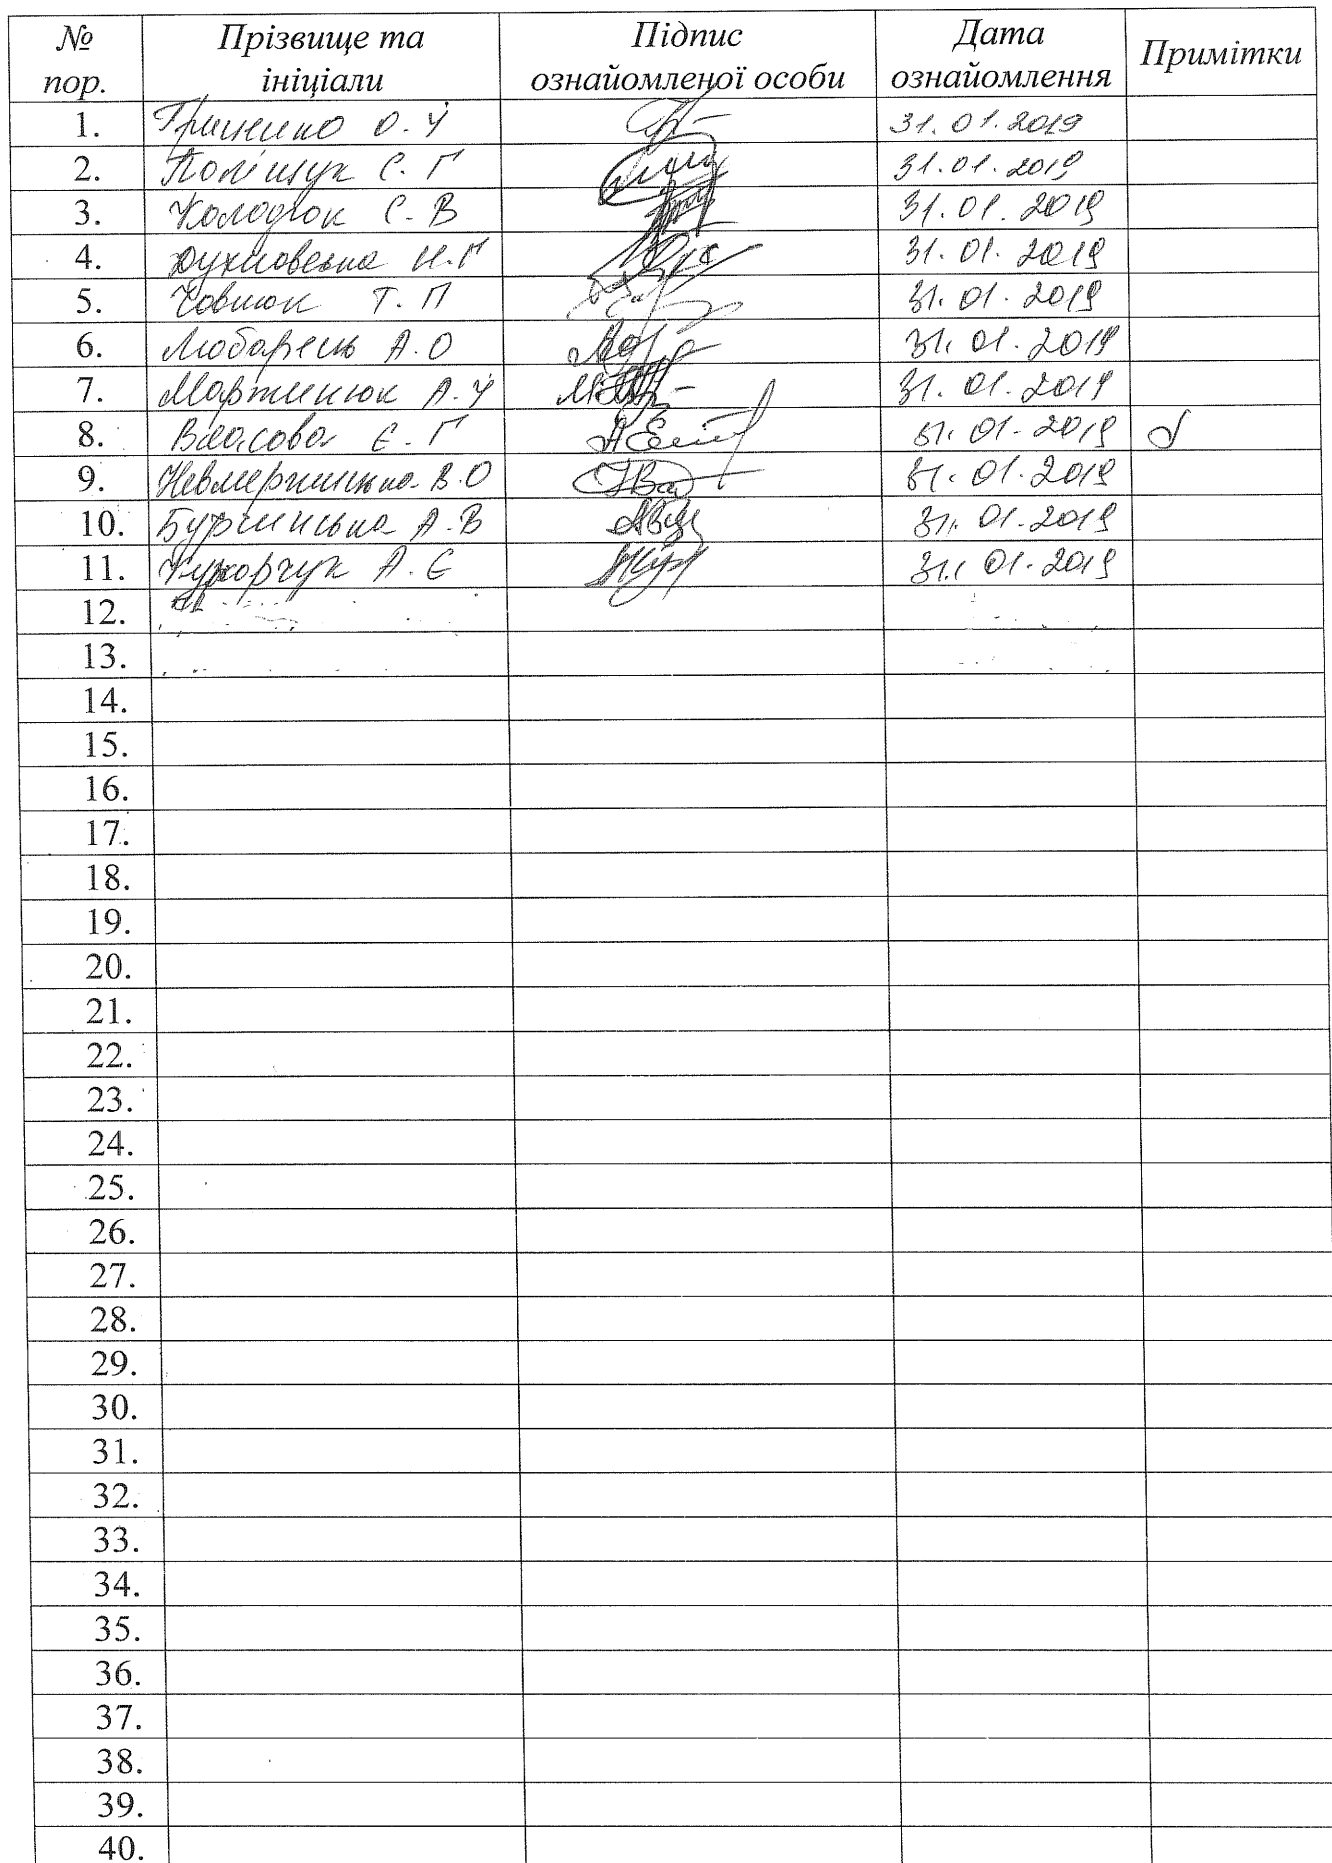 № пор. Прізвище та ініціали Підпис ознайомленої особи Дата ознайомлення Примітки
1. Гриненко О. 31.01.2019
2. Поліщук С. Г 31.01.2019
3. Колодюк С. В 31.01.2019
4. Духновська Н. Г 31.01.2019
5. Човнюк Т. П 31.01.2019
6. Любарець А. О 31.01.2019
7. Мартинюк А. 31.01.2019
8. Власова Є. Г 31.01.2019
9. Невмержицька В. О 31.01.2019
10. А. В 31.01.2019
11. А. Є 31.01.2019
12.
13.
14.
15.
16.
17.
18.
19.
20.
21.
22.
23.
24.
25.
26.
27.
28.
29.
30.
31.
32.
33.
34.
35.
36.
37.
38.
39.
40.